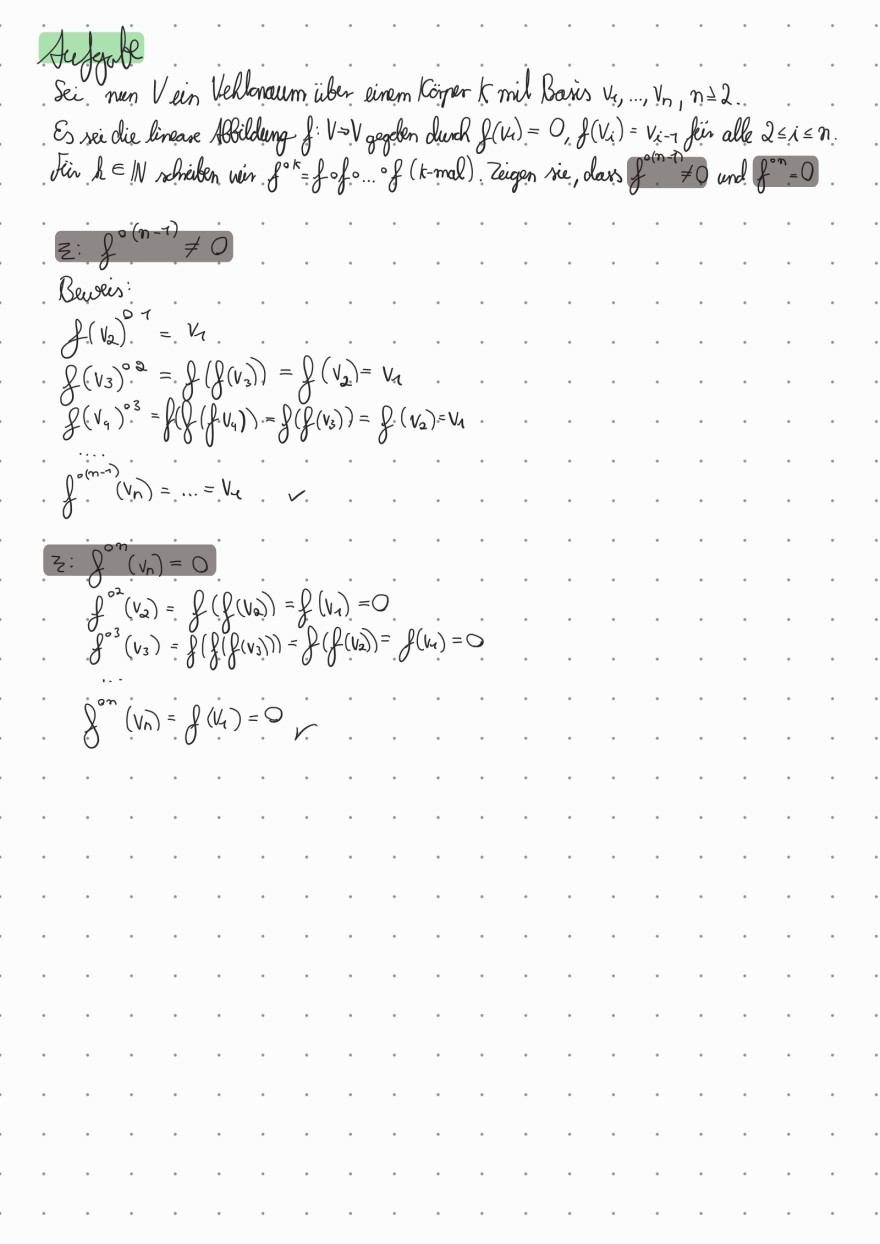 Aufgabe
Sei nun V ein Vektorraum über einem Körper K mit Basis v₁, ..., vₙ, n ≥ 2.
Es sei die lineare Abbildung f: V→V gegeben durch f(v₁) = 0, f(vᵢ) = vᵢ₋₁ für alle 2 ≤ i ≤ n.
Für k ∈ ℕ schreiben wir f^{∘k} = f∘f∘...∘f (k-mal). Zeigen sie, dass f^{∘(n-1)} ≠ 0 und f^{∘n} = 0
Z: f^{∘(n-1)} ≠ 0
Beweis:
f(v₂)^{∘1} = v₁
f(v₃)^{∘2} = f(f(v₃)) = f(v₂) = v₁
f(v₄)^{∘3} = f(f(f v₄)) = f(f(v₃)) = f(v₂) = v₁
....
f^{∘(n-1)}(vₙ) = ... = v₁ ✓
Z: f^{∘n}(vₙ) = 0
f^{∘2}(v₂) = f(f(v₂)) = f(v₁) = 0
f^{∘3}(v₃) = f(f(f(v₃))) = f(f(v₂)) = f(v₁) = 0
...
f^{∘n}(vₙ) = f(v₁) = 0 ✓